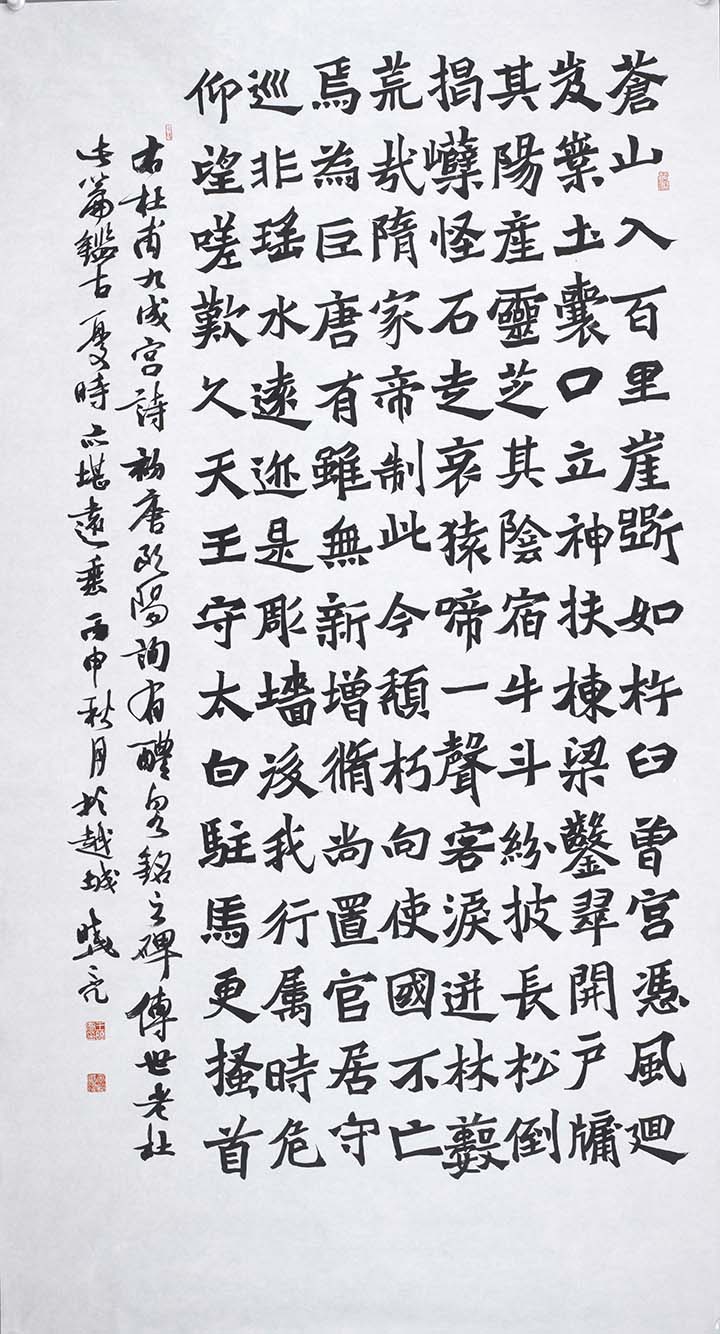 蒼山入百里崖斷如杵臼曾宮憑風迴
岌業土囊口立神扶棟梁鑿翠開戶牖
其陽產靈芝其陰宿牛斗紛披長松倒
揭巕怪石走哀猿啼一聲客淚迸林藪
荒哉隋家帝制此今頹朽向使國不亡
焉為巨唐有雖無新增脩尚置官居守
巡非瑤水遠迹是彫墻後我行属時危
仰望嗟歎久天王守太白駐馬更搔首
右杜甫九成宮詩初唐歐陽詢有醴泉銘之碑傳世老杜
此篇鑑古憂時亦堪遠垂丙申秋月於越城曉亮